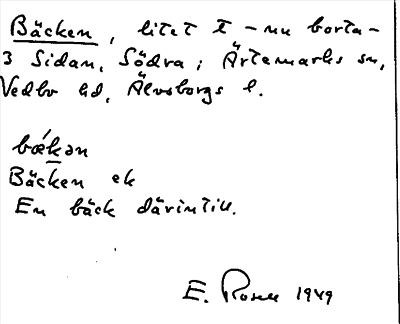 Bäcken, litet t - nu borta -
3 Sidan, Södra; Ärtemarks sn,
Vedbo hd, Älvsborgs l.
bœ́kən
Bäcken ek
En bäck därintill.
E. Rosen 1949